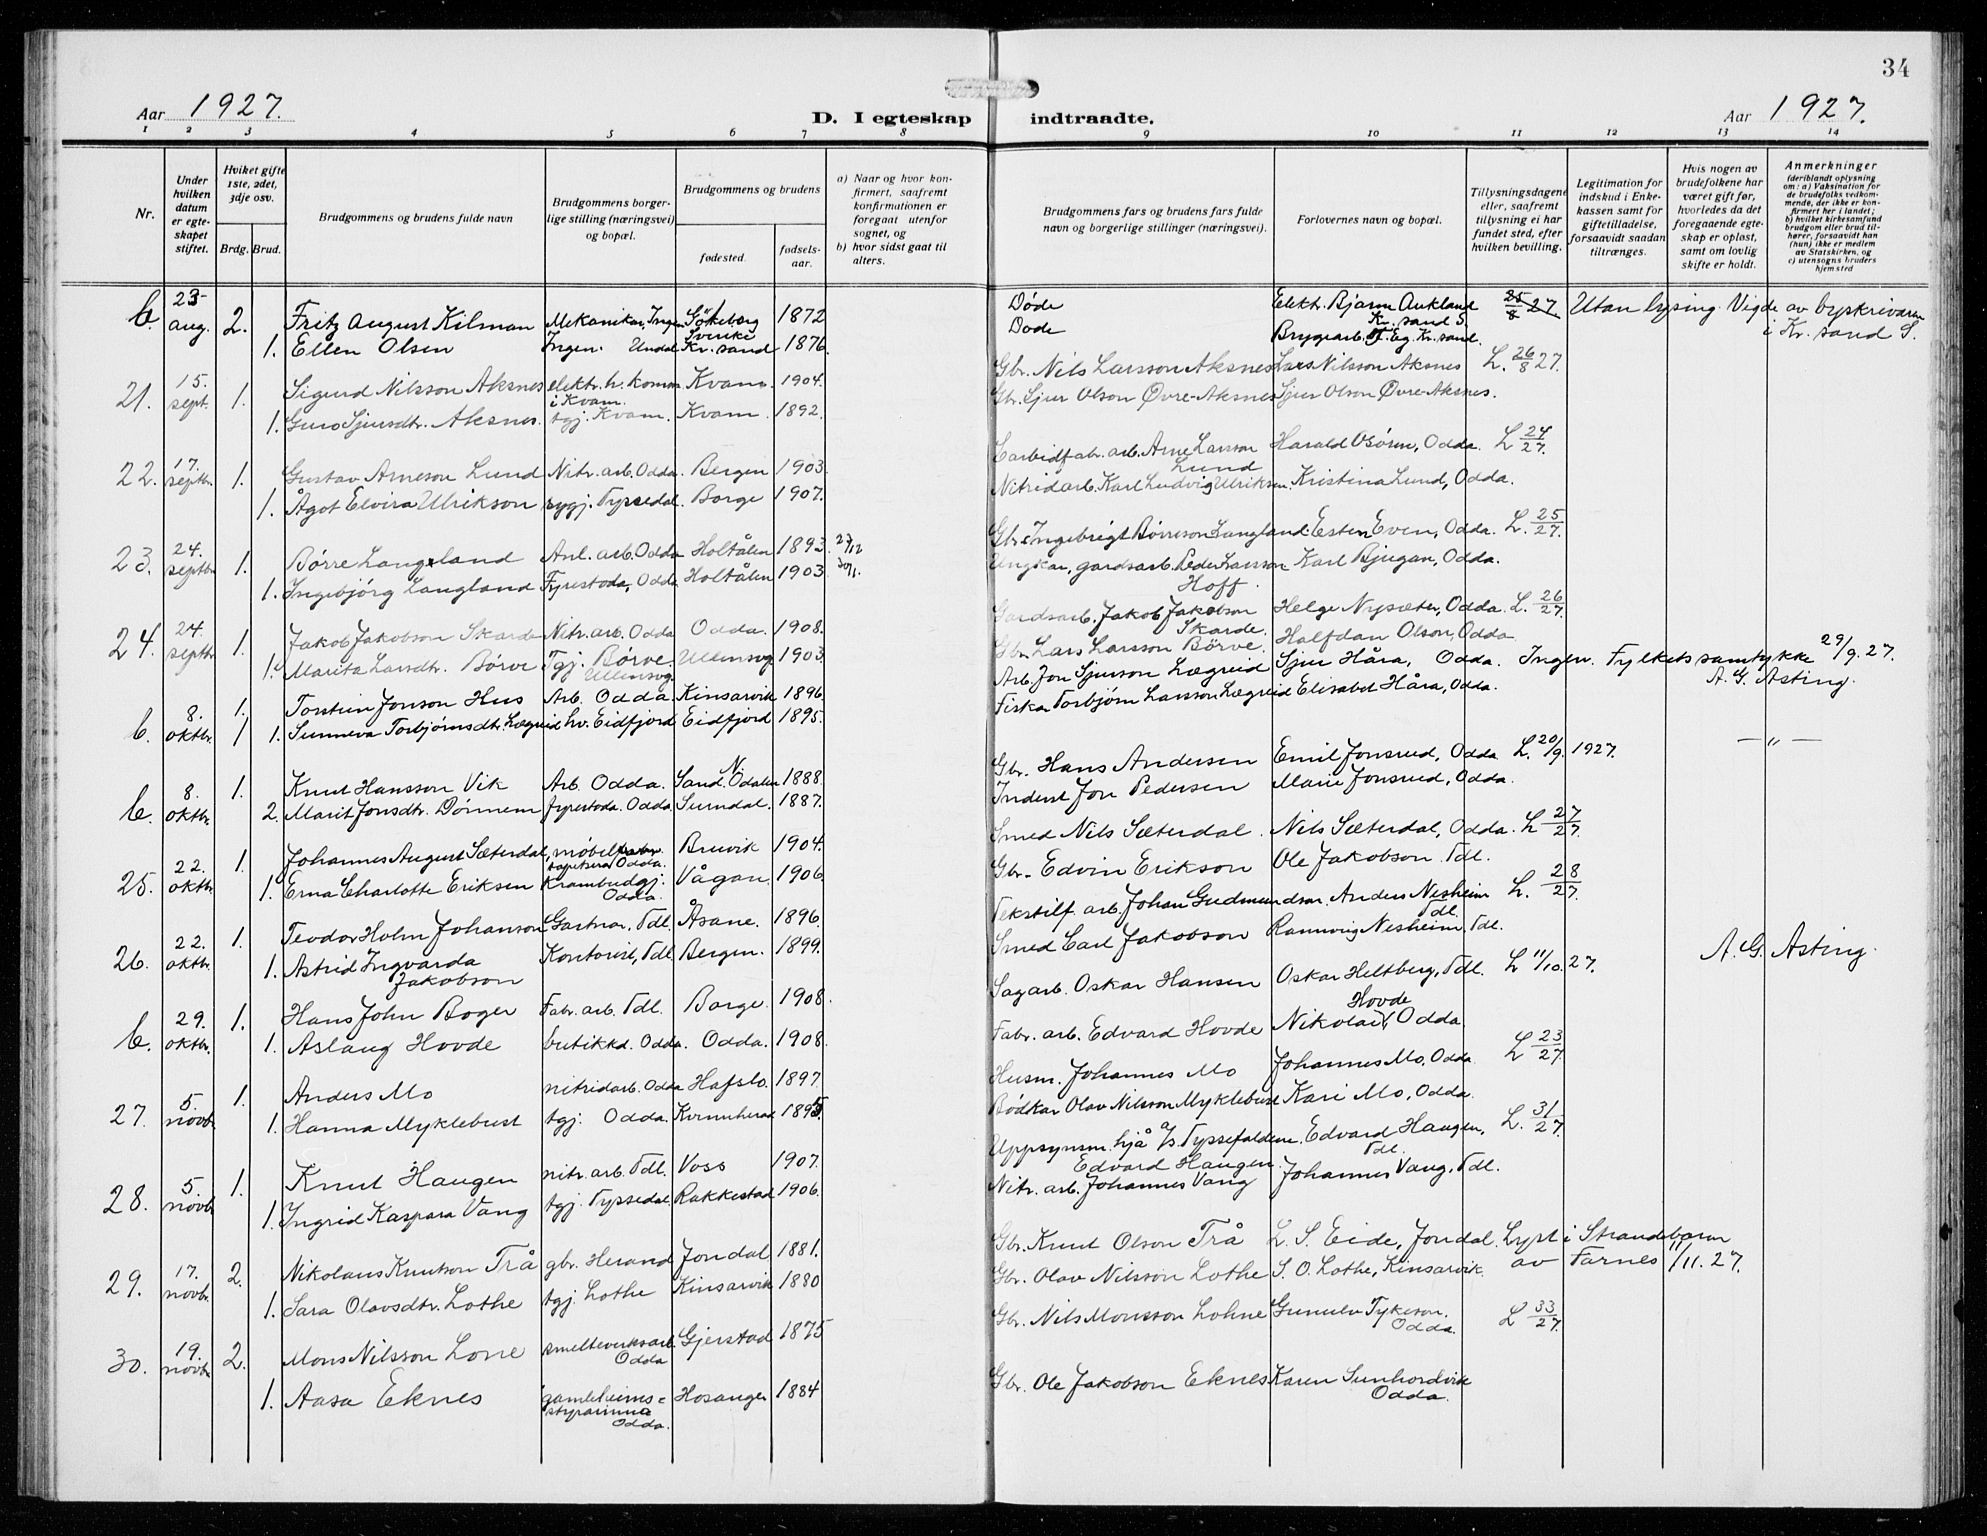 34
Aar 1927.
D. I egteskap indtraadte.
Aar 1927.
1 2 3 4 5 6 7 8 9 10 11 12 13 14
Nr.
Under hvilken datum er egteskapet stiftet.
Hviket gifte 1ste, 2det, 3dje osv.
Brdg. Brud.
Brudgommens og brudens fulde navn
Brudgommens borgerlige stilling (næringsvei) og bopæl.
Brudgommens og brudens
fødested.
fødselsaar.
a) Naar og hvor konfirmert, saafremt konfirmationen er foregaat utenfor sognet, og
b) hvor sidst gaat til alters.
Brudgommens fars og brudens fars fulde navn og borgerlige stillinger (næringsvei).
Forlovernes navn og bopæl.
Tillysningsdagene eller, saafremt tillysning ei har fundet sted, efter hvilken bevilling.
Legitimation for indskud i Enkekassen samt for giftetilladelse, forsaavidt saadan tiltrænges.
Hvis nogen av brudefolkene har været gift før, hvorledes da det foregaaende egteskap er opløst, samt om lovlig skifte er holdt.
Anmerkninger (deriblandt oplysning om: a) Vaksination for de brudefolks vedkommende, der ikke er konfirmert her i landet; b) hvilket kirkesamfund brudgom eller brud tilhører, forsaavidt han (hun) ikke er medlem av Statskirken, og c) utensogns bruders hjemsted
b. 23 aug. 2. Fritz August Kilman Mekaniker, Ingen Göteborg Sverike 1872 Døde Elekt. Bjarne Aukland Kr. sand S. 25/8 27. Utan lysing. Vigde av byskrivaren i Kr. sand S.
1. Ellen Olsen Ingen. Undal Kr. sand 1876. Døde Bryggearb. Eg. Kr. sand.
21. 15. sept. 1. Sigurd Nilsson Aksnes elektr. h. komm. i Kvam. Kvam. 1904. Gbr. Nils Larsson Aksnes Lars Nilsson Aksnes L. 26/8 27.
1. Guro Sjursdtr. Aksnes. tgj. Kvam. Kvam. 1892. Gbr. Sjur Olson Øvre-Aksnes Sjur Olson Øvre-Aksnes.
22. 17. septbr. 1. Gustav Arneson Lund Nitr. arb. Odda. Bergen 1903. Carbidfabr. arb. Arne Larsson Lund Harald Osören, Odda. L 24/27.
1. Ågot Elvira Ulrikson sygj. Tyssedal. Borge 1907. Nitridarb. Karl Ludvig Ulriksen. Kristina Lund, Odda.
23. 24. septbr. 1. Børre Langeland Anl. arb. Odda Holtålen 1893. 27/12 Gbr. Ingebrigt Børreson Langland. Esten Even, Odda. L. 25/27.
1. Ingebjörg Langland Fyrestoda, Odda. Holtålen 1903. 30/1. Ungkar, gardsarb. Peder Larsson Hoff. Karl Bjugan, Odda.
24. 24. septbr. 1. Jakob Jakobson Skarde Nitr. arb. Odda Odda. 1908. Gardsarb. Jakob Jakobson Skarde. Helge Nysæter, Odda. L. 26/27.
1. Marita Larsdtr. Börve Tgj. Börve. Ullensvg. Ullensvg 1903. Gbr. Lars Larsson Börve. Halfdan Olson, Odda
b. 8. oktbr. 1. Torstein Jonson Hus Arb. Odda Kinsarvik 1896. Arb. Jon Sjurson Lægreid Sjur Håra, Odda. Ingen. Fylkets samtykke 29/9. 27. A. G. Asting.
1 1. Sunneva Torbjørnsdtr. Lægreid hv. Eidfjord Eidfjord 1895. Fiskar Torbjørn Larsson Lægreid Elisabet Håra, Odda.
b. 8. oktbr. 1. Knut Hansson Vik Arb. Odda. Sand. N. Odalen 1888. Gbr. Hans Andersen Emil Jonsrud, Odda L. 20/9. 1927. — „ —
2. Marit Jonsdtr. Dønnem fyrestoda. Odda. Surndal. 1887. Inderst Jon Pedersen Marie Jonsrud, Odda.
25. 22. oktbr. 1. Johannes August Sæterdal, møbel Odda. Bruvik 1904. Smed Nils Sæterdal. Nils Sæterdal, Odda. L 27/27.
1. Erna Charlotte Eriksen Krambudgj. Odda. Vågan. 1906. Gbr. Edvin Erikson Ole Jakobson Tdl.
26. 22. oktbr. 1. Teodor Holm Johanson Gartnar, Tdl. Åsane. 1896. Tekstilf. arb. Johan Gudmundson. Anders Nesheim Tdl. L. 28/27.
1. Astrid Ingvarda Jakobson Kontorist, Tdl. Bergen. 1899. Smed Carl Jakobson Rannveig Nesheim, Tdl.
b. 29. oktbr. 1. Hans John Boger Fabr. arb. Tdl. Borge. 1908. Sagarb. Oskar Hansen Oskar Heltberg, Tdl. L 11/10. 27. A. G. Asting.
1. Aslaug Hovde butikkd. Odda. Odda. 1908. Fabr. arb. Edvard Hovde Nikolai Hovde, Odda
27. 5. novbr. 1. Anders Mo nitridarb. Odda Hafslo. 1897. Husm. Johannes Mo Johannes Mo, Odda L 23/27.
1. Hanna Myklebust tgj. Odda. Kvinnherad 1895. Bødkar Olav Nilsson Myklebust Kari Mo, Odda.
28. 5. novbr. 1. Knut Haugen nitr. arb. Tdl. Voss 1907. Uppsynsm. hjå a/s Tyssefaldene. Edvard Haugen. Edvard Haugen, Tdl. L. 31/27.
1. Ingrid Kaspara Vang tgj. Tyssedal. Rakkestad 1906. Nitr. arb. Johannes Vang Johannes Vang, Tdl.
29. 17. novbr. 2. Nikolaus Knutson Trå gbr. Herand Jondal 1881. Gbr. Knut Olson Trå L. S. Eide, Jondal. Lyst i Strandebarm av Farnes 1/11. 27.
1. Sara Olavsdtr. Lothe tgj. Lothe Kinsarvik 1880 Gbr. Olav Nilsson Lothe S. O. Lothe, Kinsarvik.
30. 19. novbr. 2. Mons Nilsson Lone smelteverksarb. Odda Gjerstad 1875 Gbr. Nils Monsson Lohne Gunnulv Tykeson. Odda. L 33/27.
1. Aasa Eknes gamleheims=styrarinna Odda. Hosanger 1884 Gbr. Ole Jakobson Eknes Karen Sunhordvik Odda.